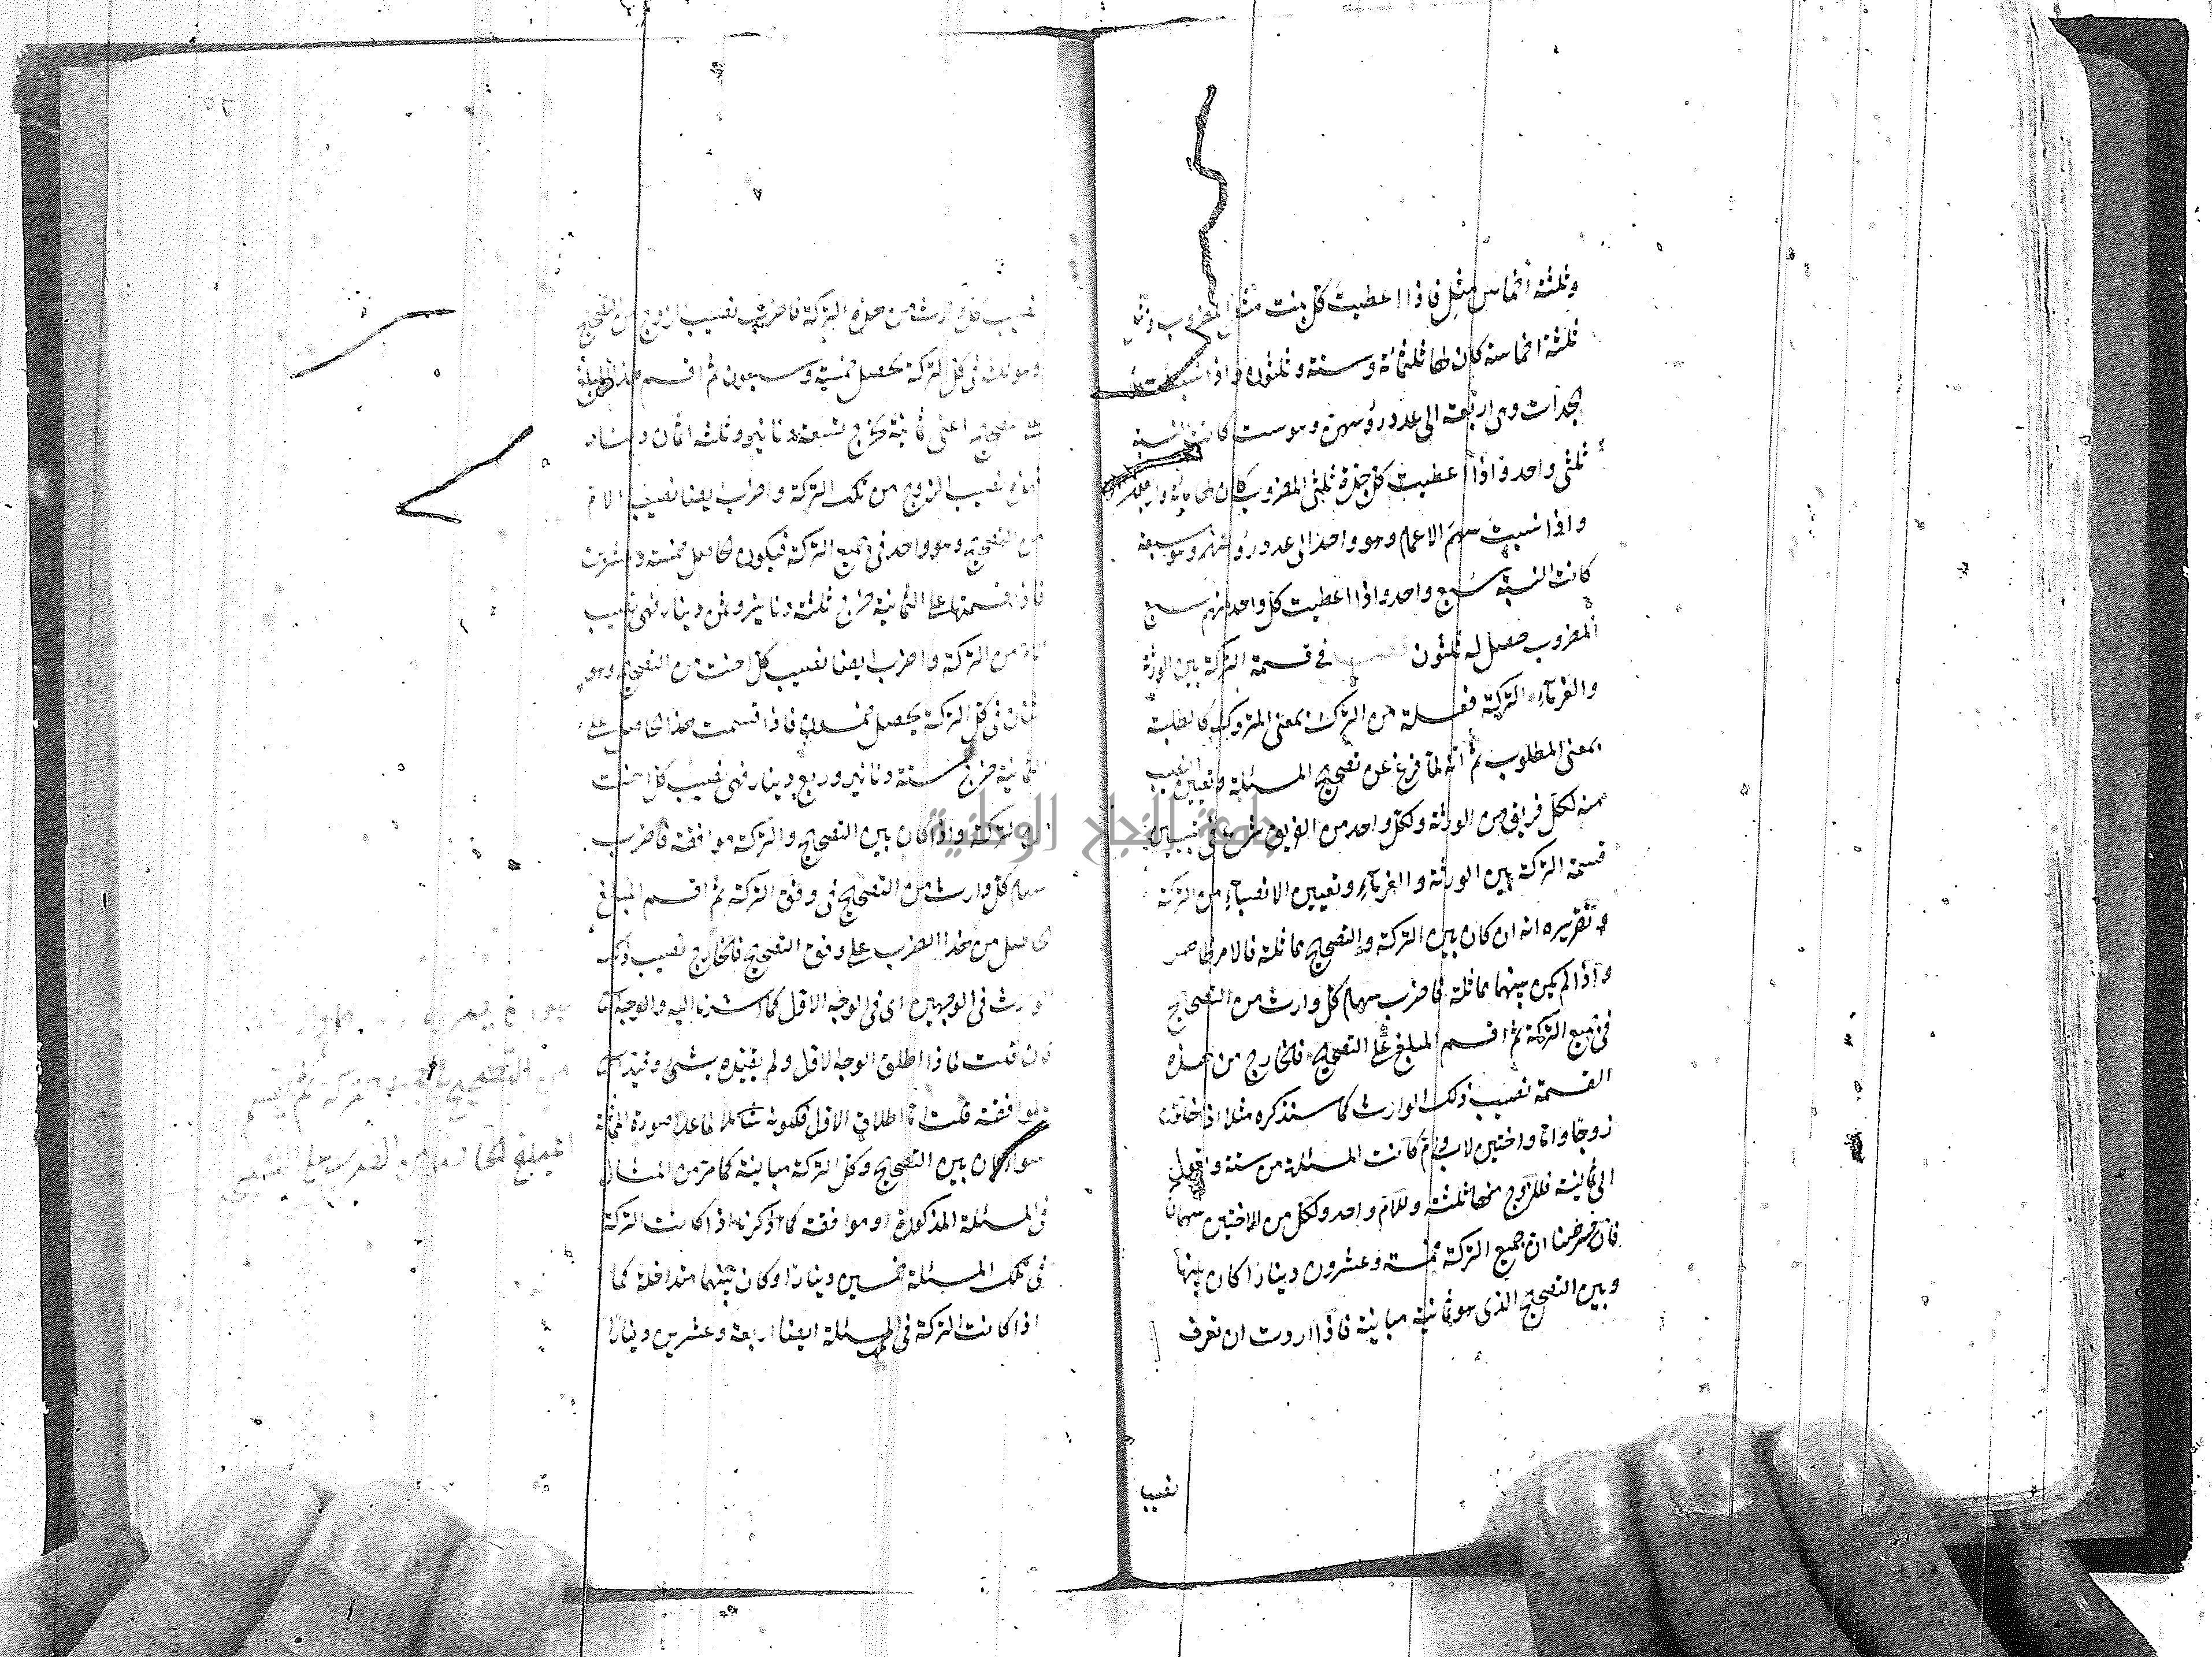 وثلثة اخماس مثل فاذا اعطيت كل بنت مثل المضروب و
ثلثة اخماسه كان لها ثلثمائة وستة وثلثون واذا نسبت
الجدات وهى اربعة الى عدد رؤسهن وهو ست كانت النسبة
ثلثى واحد واذا اعطيت كل جدة ثلثى المضروب كان لها مائة
واذا نسبت سهم الاعمام وهو واحد الى عدد رؤسهم وهو سبعة
كانت النسبة سبع واحد واذا اعطيت كل واحد منهم سبع
المضروب حصل له ثلثون في قسمة التركة بين الورثة
والغرماء التركة فعلة من الترك بمعنى المتروك كالطلبة
بمعنى المطلوب ثم انه لما فرغ عن تصحيح المسئلة وتعيين النصيب
منه لكل فريق من الورثة ولكل واحد من الفريق شرع فى تبيين
قسمة التركة بين الورثة والغرماء وتعيين الانصباء من التركة
وتقريره انه ان كان بين التركة والتصحيح مماثلة فالامر ظاهر
واذا لم يكن بينهما مماثلة فاضرب سهام كل وارث من التصحيح
فى جميع التركة ثم اقسم المبلغ على التصحيح فالخارج من هذه
القسمة نصيب ذلك الوارث كما سنذكره مثلا اذا خلف
زوجا واما واختين لاب وام كانت المسئلة من ستة وتعول
الى ثمانية فللزوج منها ثلثة وللام واحد ولكل من الاختين سهمان
فان فرضنا ان جميع التركة خمسة وعشرون دينارا كان بينها
وبين التصحيح الذى هو ثمانية مباينة فاذا اردت ان تعرف
نصيب
نصيب كل وارث من هذه التركة فاضرب نصيب الزوج من التصحيح
وهو ثلثة فى كل التركة يحصل خمسة وسبعون ثم اقسم هذا المبلغ
على التصحيح اعنى ثمانية يخرج تسعة دنانير وثلثة اثمان دينار
فهو نصيب الزوج من تلك التركة واضرب ايضا نصيب الام
من التصحيح وهو واحد فى جميع التركة فيكون الحاصل خمسة وعشرين
فاذا قسمتها على الثمانية خرج ثلثة دنانير وثمن دينار فهى نصيب
الام من التركة واضرب ايضا نصيب كل اخت من التصحيح وهو
اثنان فى كل التركة يحصل خمسون فاذا قسمت هذا الحاصل على
الثمانية خرج ستة دنانير وربع دينار فهى نصيب كل اخت
من التركة واذا كان بين التصحيح والتركة موافقة فاضرب
سهام كل وارث من التصحيح فى وفق التركة ثم اقسم المبلغ
الحاصل من هذا الضرب على وفق التصحيح فالخارج نصيب ذلك
الوارث فى الوجهين اى فى الوجه الاول كما اشرنا اليه والوجه
فان قلت لماذا اطلق الوجه الاول ولم يقيده بشئ وقيد
بموافقة قلت اما اطلاق الاول فلكونه شاملا لما عدا صورة المماثلة
سواء كان بين التصحيح وكل التركة مباينة كما مر من المثال
فى المسئلة المذكورة او موافقة كما اذكرنا اذا كانت التركة
فى تلك المسئلة خمسين دينارا وكان بينهما متداخلة كما
اذا كانت التركة فى المسئلة ايضا اربعة وعشرين دينارا